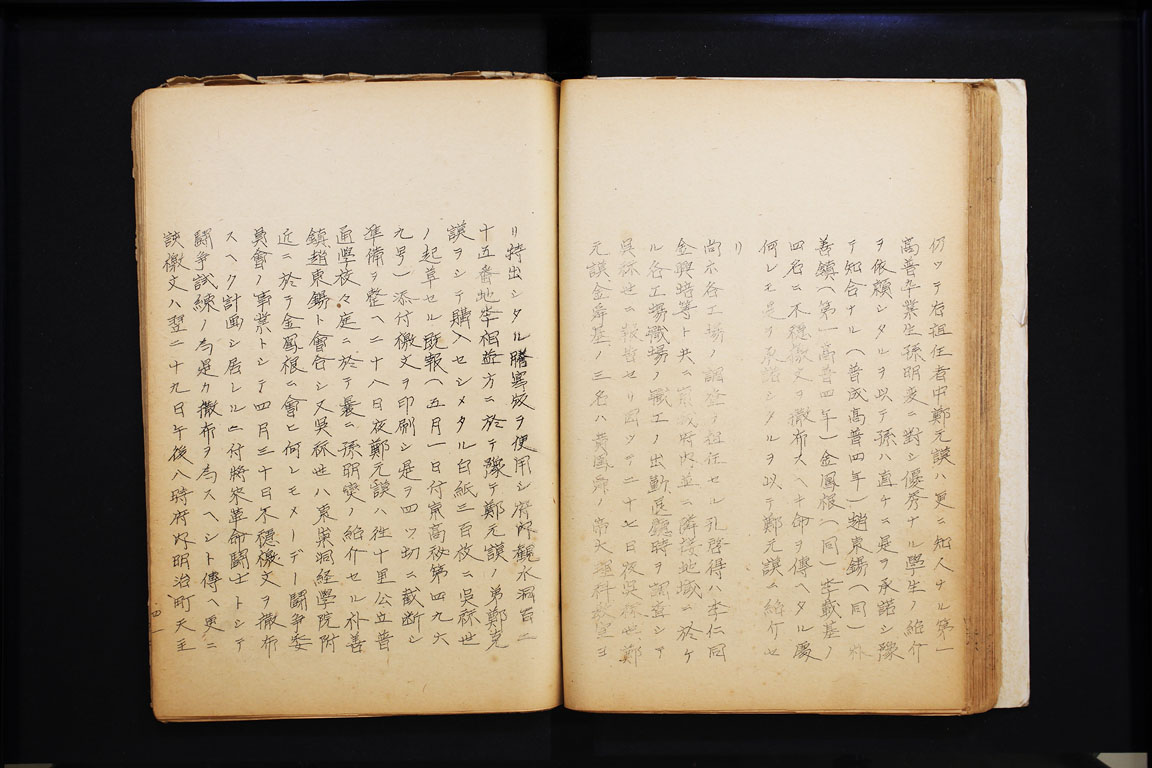 仍ッテ右担任者中鄭元謨ハ更ニ知人ナル第一
高普卒業生孫明奕ニ對シ優秀ナル學生ノ紹介
ヲ依頼シタルヲ以テ孫ハ直ケニ是ヲ承諾シ豫
テ知合ナル(普成高普四年)趙東錫(同)朴
善鎮(第一高普四年)金鳳根(同)李載基ノ
四名ニ不穏檄文ヲ撒布スヘキ命ヲ傳ヘタル處
何レモ是ヲ承諾シタルヲ以テ鄭元謨ニ紹介セ
リ
尚ホ各工場ノ調査ノ担任セル孔啓得ハ李仁同
金興培等ト共ニ京城府内並ニ隣接地域ニ於ケ
ル各工場職場ノ職工ノ出勤退廳時ヲ調査シテ
呉秝世ニ報告セリ因ツテ二十七日夜呉秝世鄭
元謨金舜基ノ三名ハ黄鳳舜ノ帝大理科教室ヨ
リ持出シタル謄寫版ヲ使用シ府内觀水洞百二
十五番地李相益方ニ於テ豫テ鄭元謨ノ弟鄭克
謨ヲシテ購入セシメタル白紙三百枚ニ呉秝世
ノ起草セル既報(五月一日付京高秘第四九六
九号)添付檄文ヲ印刷シ是ヲ四ッ切ニ截断シ
準備ヲ整ヘ二十八日夜鄭元謨ハ往十里公立普
通學校々庭ニ於テ曩ニ孫明奕ノ紹介セル朴善
鎮趙東錫ト會合シ又呉秝世ハ東崇洞経學院附
近ニ於テ金鳳根ニ會ヒ何レモメーデー鬪争委
員會ノ事業トシテ四月三十日不穏檄文ヲ撒布
スヘク計画シ居レルニ付將来革命鬪士トシテ
鬪争試練ノ為是カ撒布ヲ為スヘシト傳ヘ更ニ
該檄文ハ翌二十九日午後八時府内明治町天主